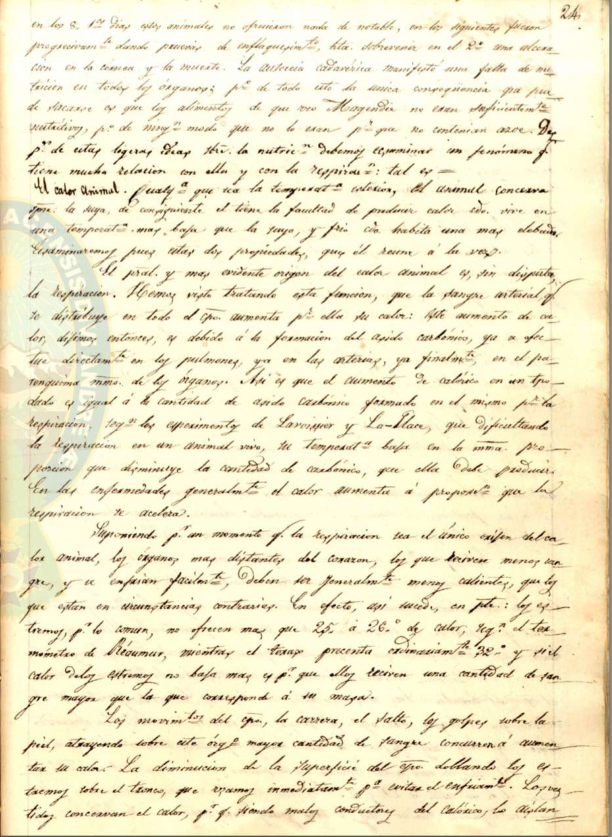 24,
en los 8. 1ros Dias estos animales no ofrecieron nada de notable, en los siguientes fueron
progresivamte. dando pruevas de enflaquesimto, hta. sobrevenir en el 2º una ulcera-
cion en la córnea y la muerte. La autorcia cadavérica manifestó una falta de nu-
tricion en todos los órganos; pr. de todo esto la unica conseqüencia que pue-
de sacarse es que los alimentos de que uso Magendie no eran suficientemte.
nutritivos, pr. de ningn. modo que no lo eran pr. que no contenian azoe. Des-
ps. de estas ligeras ideas sbre. la nutricn. debemos examinar un fenómeno q.
tiene mucha relacion con ella y con la respiracn.: tal es=
El calor animal. qualqa. que sea la temperata. esterior, el animal conserva
spre. la suya, de consiguiente el tiene la facultad de producir calor cdo. vive en
una temperata. mas baja que la suya, y frio cdo habita una mas elebada.
Examinaremos pues estas dos propiedades, que él reune á la vez.
El pral. y mas evidente origen del calor animal es, sin disputa,
la respiracion. Hemos visto tratando esta funcion, que la sangre arterial q.
se distribuye en todo el cpo. aumenta pr. ella su calor: Este aumento de ca-
lor, desimos entonces, es debido á la formacion del asido carbónico, ya se efec-
tue directamte. en los pulmones, ya en las arterias, ya finalmte, en el pa-
renquima mmo. de los órganos. Asi es que el aumento de calórico en un tpo
dado es igual á la cantidad de asido carbónico formado en el mismo pr. la
respiracion, segn. los esperimentos de Lavoissier y La-Place, que dificultando
la respiracion en un animal vivo, su temperata. baja en la mma. pro-
porcion que disminuye la cantidad de carbónico, que ella debe producir.
En las enfermedades generalmte. el calor aumenta á proporcn. que la
respiracion se acelera.
Suponiendo pr. un momento q. la respiracion sea el único orijen del ca-
lor animal, los órganos mas distantes del corazon, los que reciven menos san-
gre, y se enfrian facilmte, deben ser generalmte. menos calientes, que los
que estan en circunstancias contrarias. En efecto, asi sucede, en pte.: los es-
tremos, pr. lo comun, no ofrecen mas que 25. á 26.º de calor, segn. el ter-
mómetro de Reaumur, mientras el torax precenta ordinariamte. 32.º y si el
calor delos estremos no baja mas es pr. que ellos reciven una cantidad de san-
gre mayor que la que corresponde á su masa.
Los movimtos del cpo., la carrera, el salto, los golpes sobre la
piel, atrayendo sobre este órgo. mayor cantidad de sangre concurren á aumen-
tar su calor. La diminucion de la superficie del cpo. doblando los es-
tremos sobre el tronco, que usamos inmediatamte. pa. evitar el enfriamto. Los ves-
tidos conservan el calor, pr. q. siendo malos conductores del calórico, lo aislan